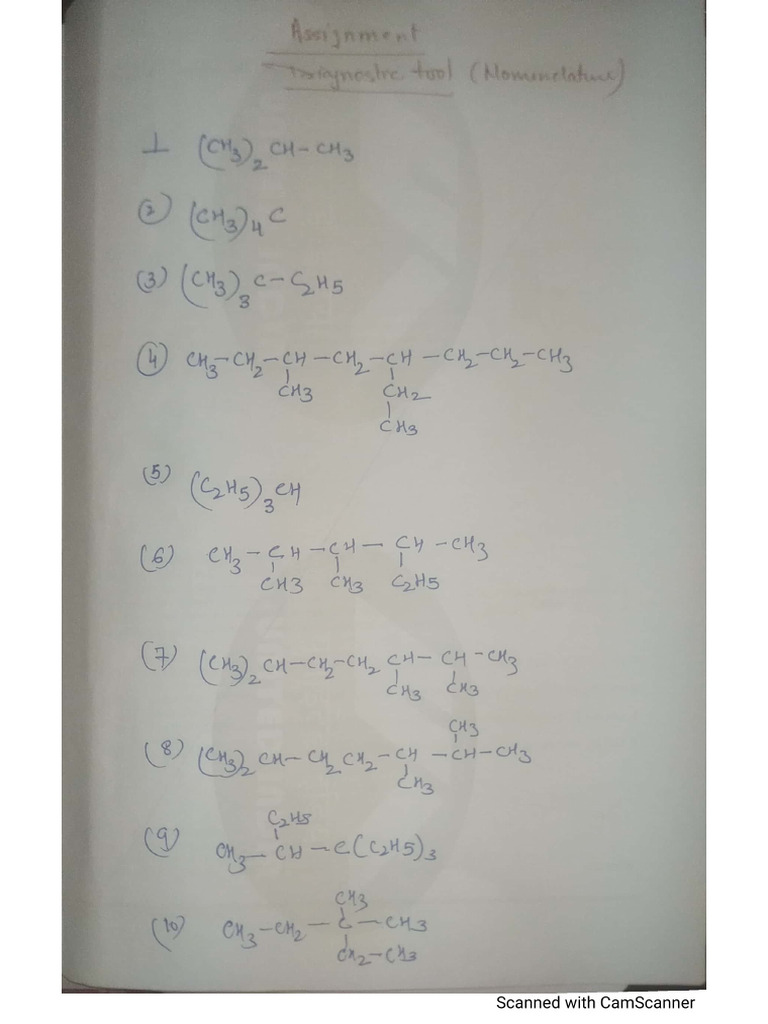 Assignment
Diagnostic tool (Nomenclature)
1 (CH3)2 CH-CH3
(2) (CH3)4 C
(3) (CH3)3 C-C2H5
(4) CH3-CH2-CH-CH2-CH-CH2-CH2-CH3
CH3 CH2
CH3
(5) (C2H5)3 CH
(6) CH3-CH-CH-CH-CH3
CH3 CH3 C2H5
(7) (CH3)2 CH-CH2-CH2 CH-CH-CH3
CH3 CH3
CH3
(8) (CH3)2 CH-CH2 CH2-CH-CH-CH3
CH3
C2H5
(9) CH3-CH-C(C2H5)3
CH3
(10) CH3-CH2-C-CH3
CH2-CH3
Scanned with CamScanner